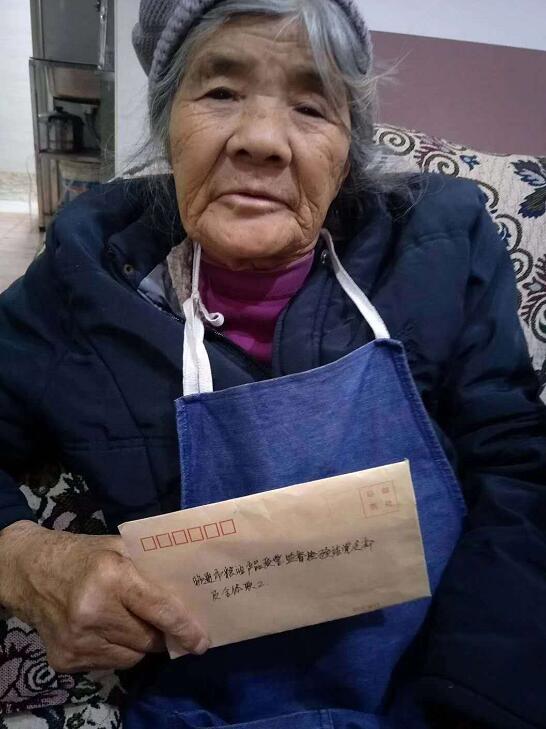 贴邮
票处
昭通市粮油产品质量监督检验站党支部
及全体职工